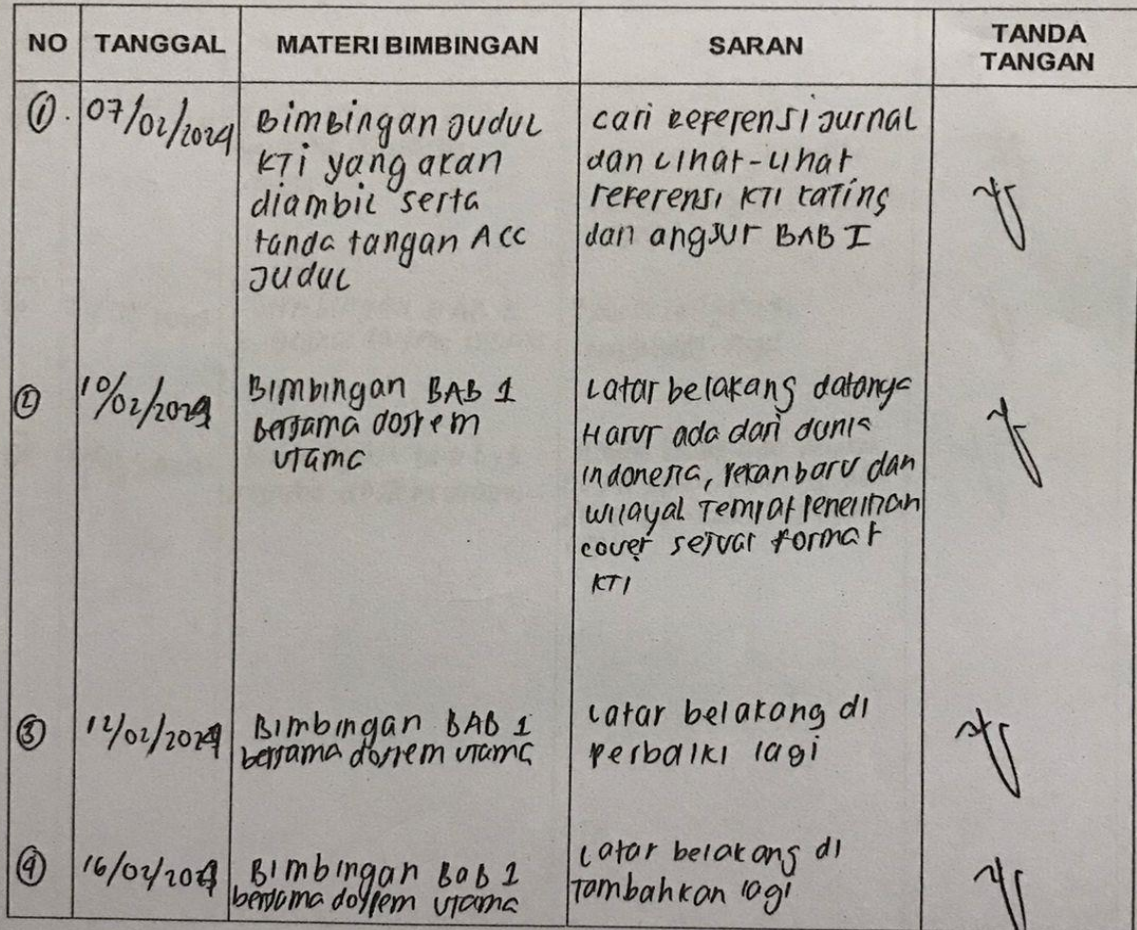 NO TANGGAL MATERI BIMBINGAN SARAN TANDA TANGAN
①. 07/02/2024
Bimbingan Judul
KTi yang akan
diambil serta
tanda tangan ACC
Judul
cari Referensi Jurnal
dan Lihat-lihat
referensi KTI kating
dan angsur BAB I
② 10/02/2024
Bimbingan BAB 1
bersama dospem
utama
Latar belakang datanya
Harus ada dari dunia
indonesia, pekanbaru dan
wilayah Tempat Penelitian
cover sesuai format
KTI
③ 12/02/2024
Bimbingan BAB 1
bersama dospem utama
Latar belakang di
perbaiki lagi
④ 16/02/2024
Bimbingan Bab 1
bersama dospem utama
Latar belakang di
Tambahkan lagi